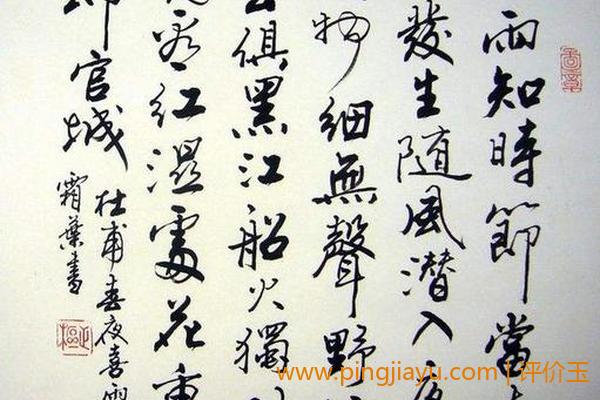 雨知時節當
發生随風潜入夜
物細無聲野
雲俱黑江船火獨
看紅濕處花重
官城
杜甫春夜喜雨
霜葉書
www.pingjiayu.com | 评价玉